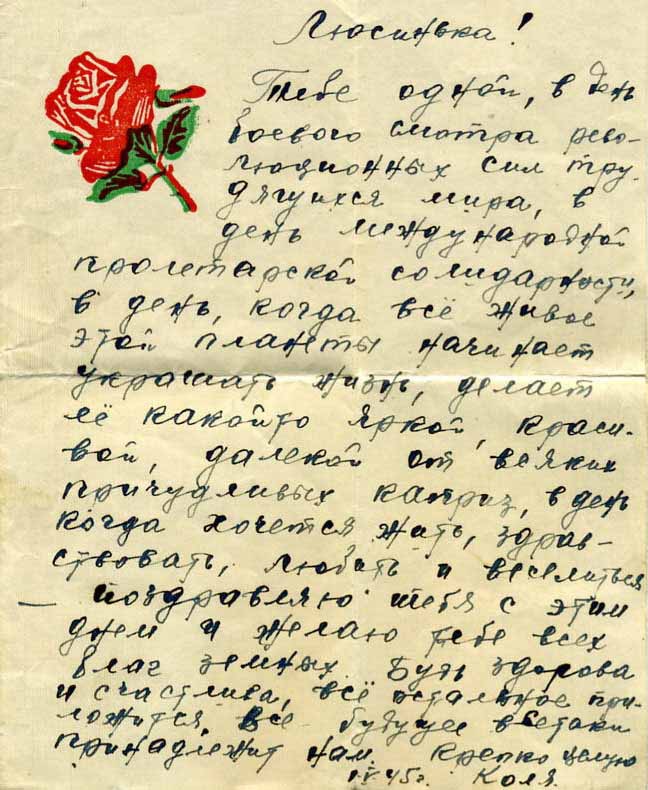 Люсинька!
Тебе одной, в день
боевого смотра рево-
люционных сил тру-
дящихся мира, в
день международной
пролетарской солидарности,
в день, когда всё живое
этой планеты начинает
украшать жизнь, делает
её какойто яркой, краси-
вой, далекой от всяких
причудливых каприз, в день
когда хочется жить, здрав-
ствовать, любить и веселиться
— поздравляю тебя с этим
днем и желаю тебе всех
благ земных. Будь здорова
и счастлива, всё остальное при-
ложится, Всё будущее всетаки
принадлежит нам. Крепко целую
1.V.45г. Коля.